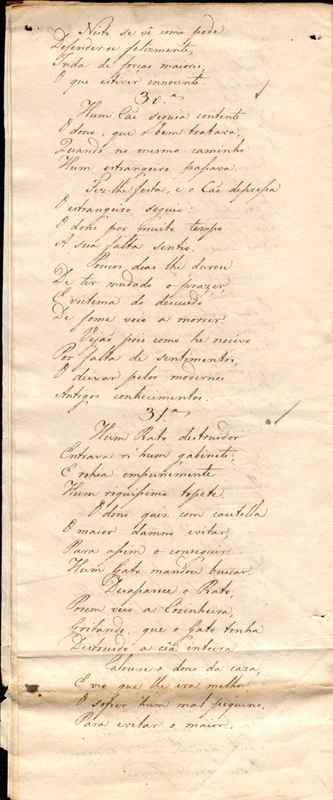 Neste se vê como pode
Defender-se felizmente,
Inda de forças maiores,
O que estiver innocente.
30.ª
Hum Cáo seguia contente
O dono, que o bem tratava,
Quando no mesmo caminho
Hum estrangeiro passava.
Fez-lhe festa, e o Cáo depressa
O estrangeiro seguio:
O dono por muito tempo
A sua falta sentio.
Poucos dias lhe durou
De ter mudado o prazer,
E victima do descuido
De fome veio a morrer.
Vejão pois como he nocivo
Por falta de sentimentos,
O deixar pelos modernos
Antigos conhecimentos.
31.ª
Hum Rato destruidor
Entrava n'hum gabinete,
E rohia impunemente
Hum riquissimo tapete.
O dono quiz com cautella
O maior damno evitar,
Para assim o conseguir
Hum Gato mandou buscar.
Desaparece o Rato,
Porem veio a Cozinheira,
Gritando, que o Gato tinha
Destruido a cêa inteira.
o dono da caza,
E vio que lhe era melhor
O sofrer hum mal pequeno,
Para evitar o maior.